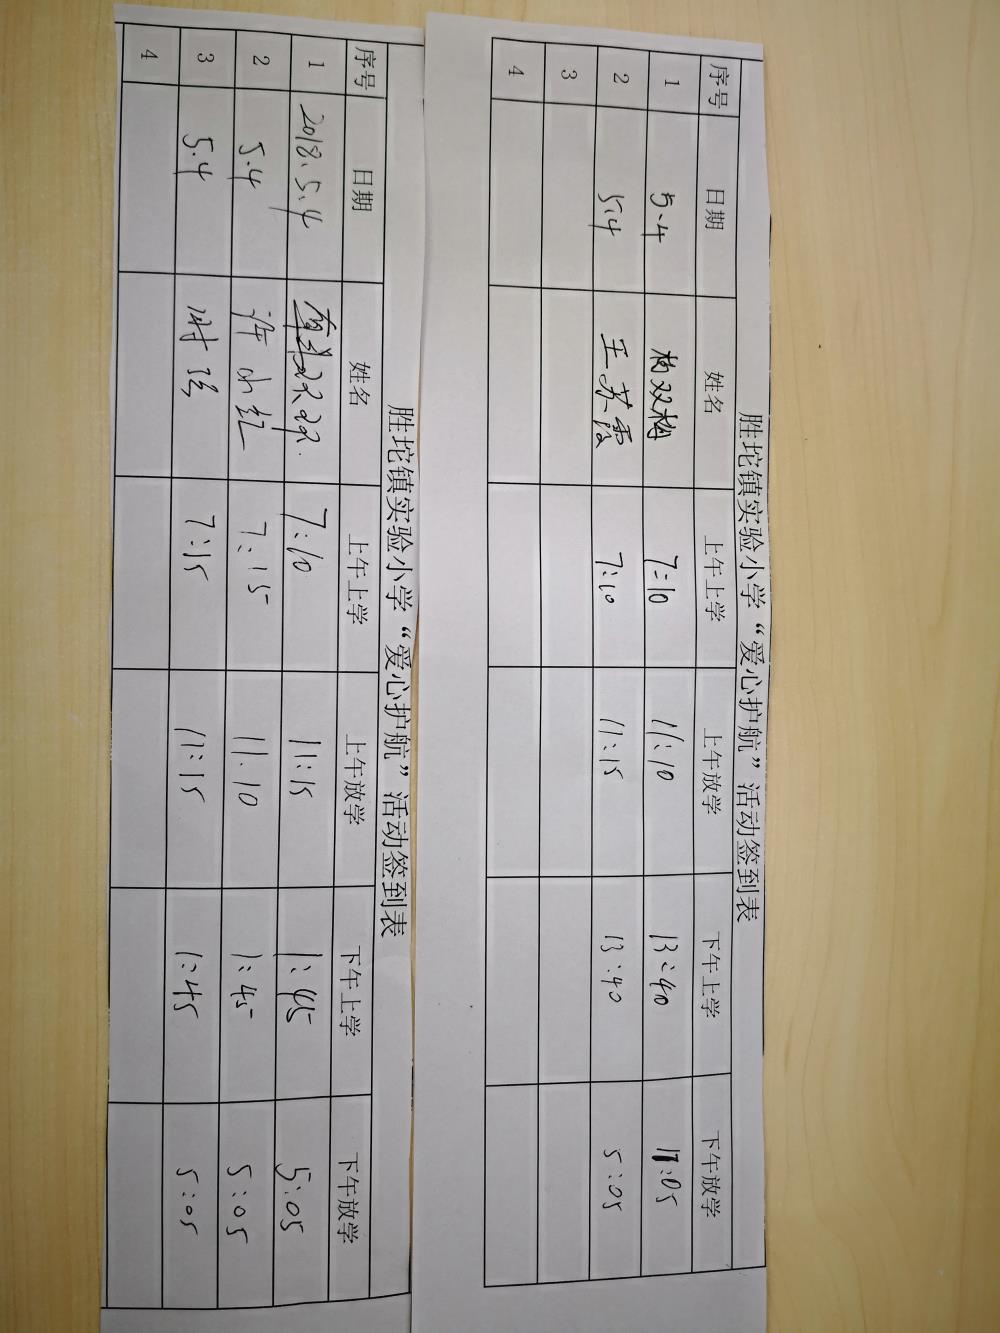 胜坨镇实验小学“爱心护航”活动签到表
序号 日期 姓名 上午上学 上午放学 下午上学 下午放学
1 5.4 杨双梅 7:10 11:10 13:40 17:05
2 5.4 王苏霞 7:10 11:15 13:40 5:05
3
4
胜坨镇实验小学“爱心护航”活动签到表
序号 日期 姓名 上午上学 上午放学 下午上学 下午放学
1 2018.5.4 7:10 11:15 1:45 5:05
2 5.4 许小红 7:15 11.10 1:45 5:05
3 5.4 7:15 11:15 1:45 5:05
4